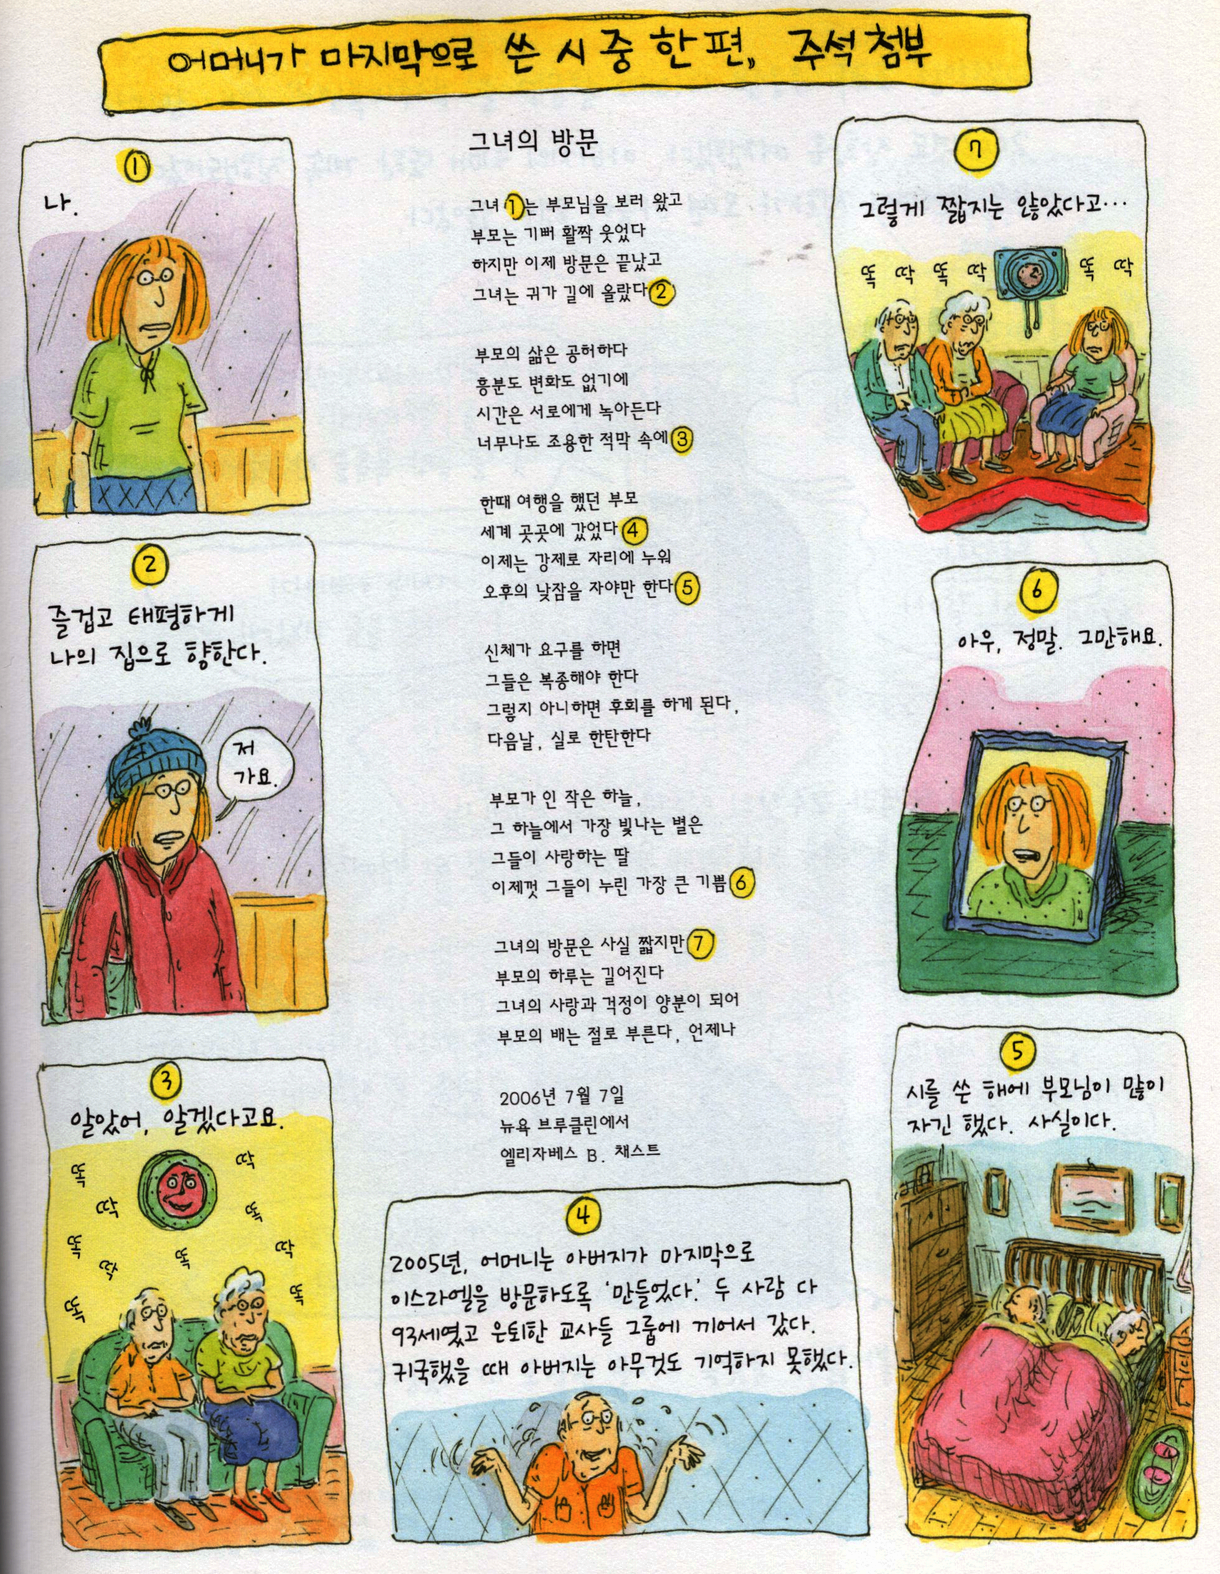 어머니가 마지막으로 쓴 시 중 한 편, 주석 첨부
그녀의 방문
그녀①는 부모님을 보러 왔고
부모는 기뻐 활짝 웃었다
하지만 이제 방문은 끝났고
그녀는 귀가 길에 올랐다②
부모의 삶은 공허하다
흥분도 변화도 없기에
시간은 서로에게 녹아든다
너무나도 조용한 적막 속에③
한때 여행을 했던 부모
세계 곳곳에 갔었다④
이제는 강제로 자리에 누워
오후의 낮잠을 자야만 한다⑤
신체가 요구를 하면
그들은 복종해야 한다
그렇지 아니하면 후회를 하게 된다,
다음날, 실로 한탄한다
부모가 인 작은 하늘,
그 하늘에서 가장 빛나는 별은
그들이 사랑하는 딸
이제껏 그들이 누린 가장 큰 기쁨⑥
그녀의 방문은 사실 짧지만⑦
부모의 하루는 길어진다
그녀의 사랑과 걱정이 양분이 되어
부모의 배는 절로 부른다, 언제나
2006년 7월 7일
뉴욕 브루클린에서
엘리자베스 B. 채스트
①
나.
②
즐겁고 태평하게
나의 집으로 향한다.
저
가요.
③
알았어, 알겠다고요.
똑 딱
딱 똑
똑 똑 딱
딱
똑 똑
④
2005년, 어머니는 아버지가 마지막으로
이스라엘을 방문하도록 '만들었다.' 두 사람 다
93세였고 은퇴한 교사들 그룹에 끼어서 갔다.
귀국했을 때 아버지는 아무것도 기억하지 못했다.
⑤
시를 쓴 해에 부모님이 많이
자긴 했다. 사실이다.
⑥
아우, 정말. 그만해요.
⑦
그렇게 짧지는 않았다고…
똑 딱 똑 딱 똑 딱